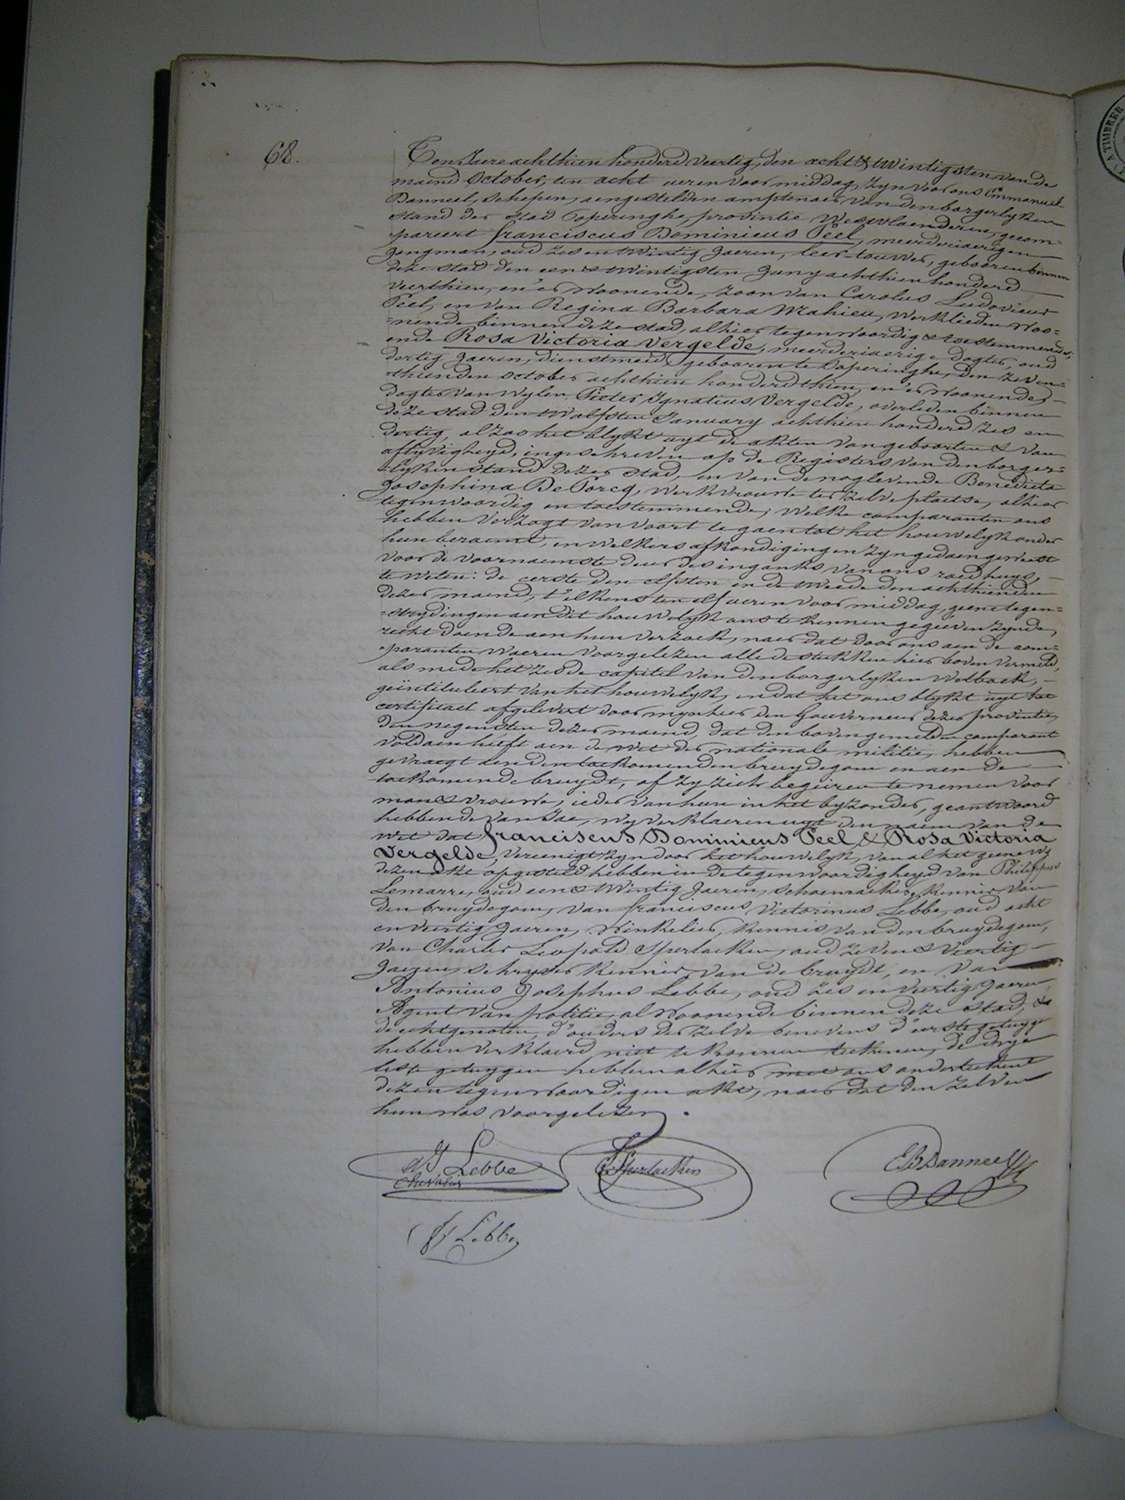 68.
Ten Jaere achthien honderd veertig, den acht & twintigsten van de
maend October, ten acht ueren voor middag, zyn voor ons Emmanuel
Banneel, schepen, aengestelden amptenaer van den borgerlyken
stand der stad Poperinghe, provintie Westvlaenderen, gecom-
pareert franciscus Dominicus Peel, meerderjaerigen
jongman, oud zes en twintig Jaeren, leer-touwer, geboren binnen
deze stad den een & twintigsten Juny achthien honderd
veerthien, en er woonende, zoon van Carolus Ludovicus
Peel, en van Regina Barbara Mahieu, werklieden woo-
=nende binnen deze stad, alhier tegenwoordig & toestemmende,
ende Rosa Victoria Vergelde, meerderjaerige dogter, oud
dertig Jaeren, dienstmeid, geboren te Poperinghe, den zeven-
=thienden october achthien honderd thien, en er woonende,
dogter van wylen Pieter Ignatius Vergelde, overleden binnen
deze stad den twalfsten January achthien honderd zes en
dertig, alzoo het blykt uyt de akten van geboorten & van
aflyvigheyd, ingeschreven op de Registers van den borger-
=lyken stand dezer stad, en van de nog levende Benedicta
Josephina De Porcq, werkvrouwe ter zelve plaetse, alhier
tegenwoordig en toestemmende, welke comparanten ons
hebben verzogt van voort te gaen tot het houwelyk onder
hun beraemt, en welkers afkondigingen zyn gedaen geweest
voor de voornaemste deur des ingangs van ons raedhuys,
te weten: de eerste den elfsten en de tweede den achthienden
dezer maend, t'elkens ten elf ueren voor middag, geene tegen-
=strydingen aen dit houwelyk ons te kennen gegeven zynde,
recht doende aen hun verzoek, naer dat door ons aen de com-
=paranten waeren voorgelezen alle de stukken hier boven vermeld,
als mede het zesde capitel van den borgerlyken wetboek,
geïntituleert van het houwelyk, en dat het ons blykt uyt het
certificaet afgelevert door mynheer den Gouverneur dezer provintie,
den negensten dezer maend, dat den bovengemelden comparant
voldaen heeft aen de wet der nationale militie, hebben
gevraegt aen den toekomenden bruydegom en aen de
toekomende bruydt, of zy zich begeiren te nemen voor
man & vrouwe, ieder van hun in het byzonder, geantwoord
hebbende van Jae, wy verklaeren uyt den naem van de
wet dat franciscus Dominicus Peel & Rosa Victoria
Vergelde, vereenigt zyn door het houwelyk, van al het geene wy
dezen akt opgesteld hebben in de tegenwoordigheyd van Philippus
Lemarre, oud een & twintig Jaeren, schoenmaker, kennis van
den bruydegom, van franciscus Victorinus Lebbe, oud acht
en veertig Jaeren, winkelier, kennis van den bruydegom,
van Charles Leopold Sperlaeken, oud zeven & veertig
Jaeren, schryver kennis van de bruydt, en van
Antonius Josephus Lebbe, oud zes en veertig Jaeren
Agent van politie, al woonende binnen deze stad, &
de echtgenoten, d'ouders der zelve benevens d'eerste getuyge
hebben verklaerd niet te konnen teekenen, de drye
leste getuygen hebben alhier met ons onderteekent
dezen tegenwoordigen akt, naer dat den zelven
hun was voorgelezen.
A J Lebbe
Sperlaeken
E Banneel
fv Lebbe